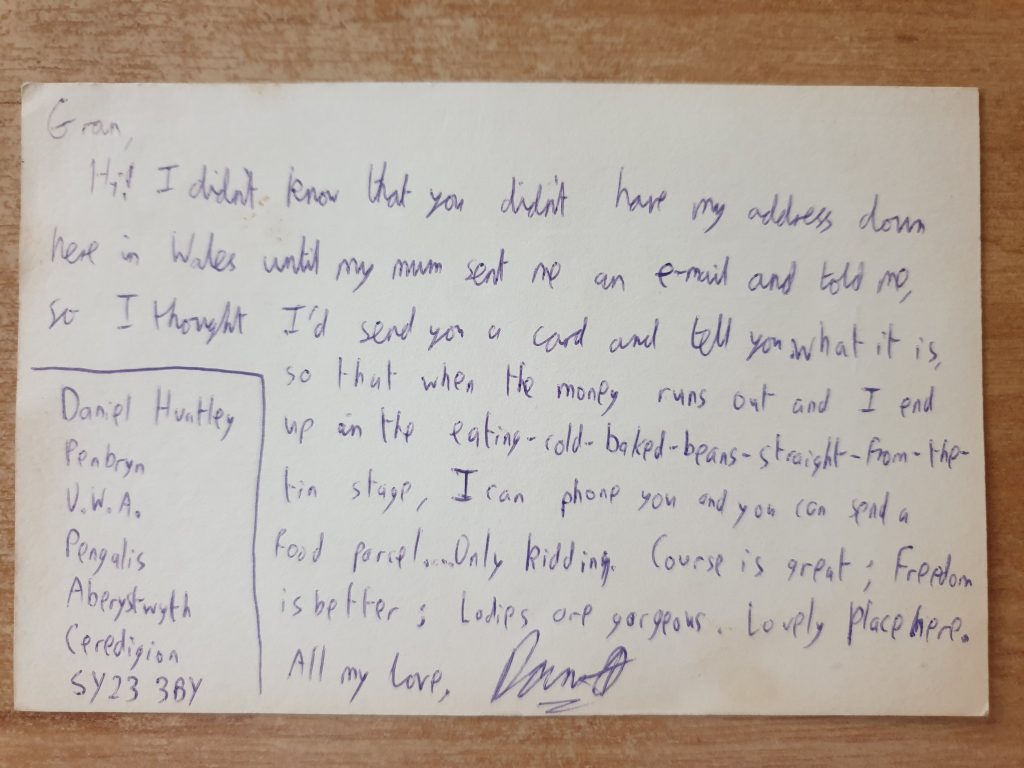 Gran,
Hi! I didn't know that you didn't have my address down
here in Wales until my mum sent me an e-mail and told me,
so I thought I'd send you a card and tell you what it is,
so that when the money runs out and I end
up in the eating-cold-baked-beans-straight-from-the-
tin stage, I can phone you and you can send a
food parcel....Only kidding. Course is great; Freedom
is better; Ladies are gorgeous. Lovely place here.
All my love,
Daniel Huntley
Penbryn
U.W.A.
Penglais
Aberystwyth
Ceredigion
SY23 3BY